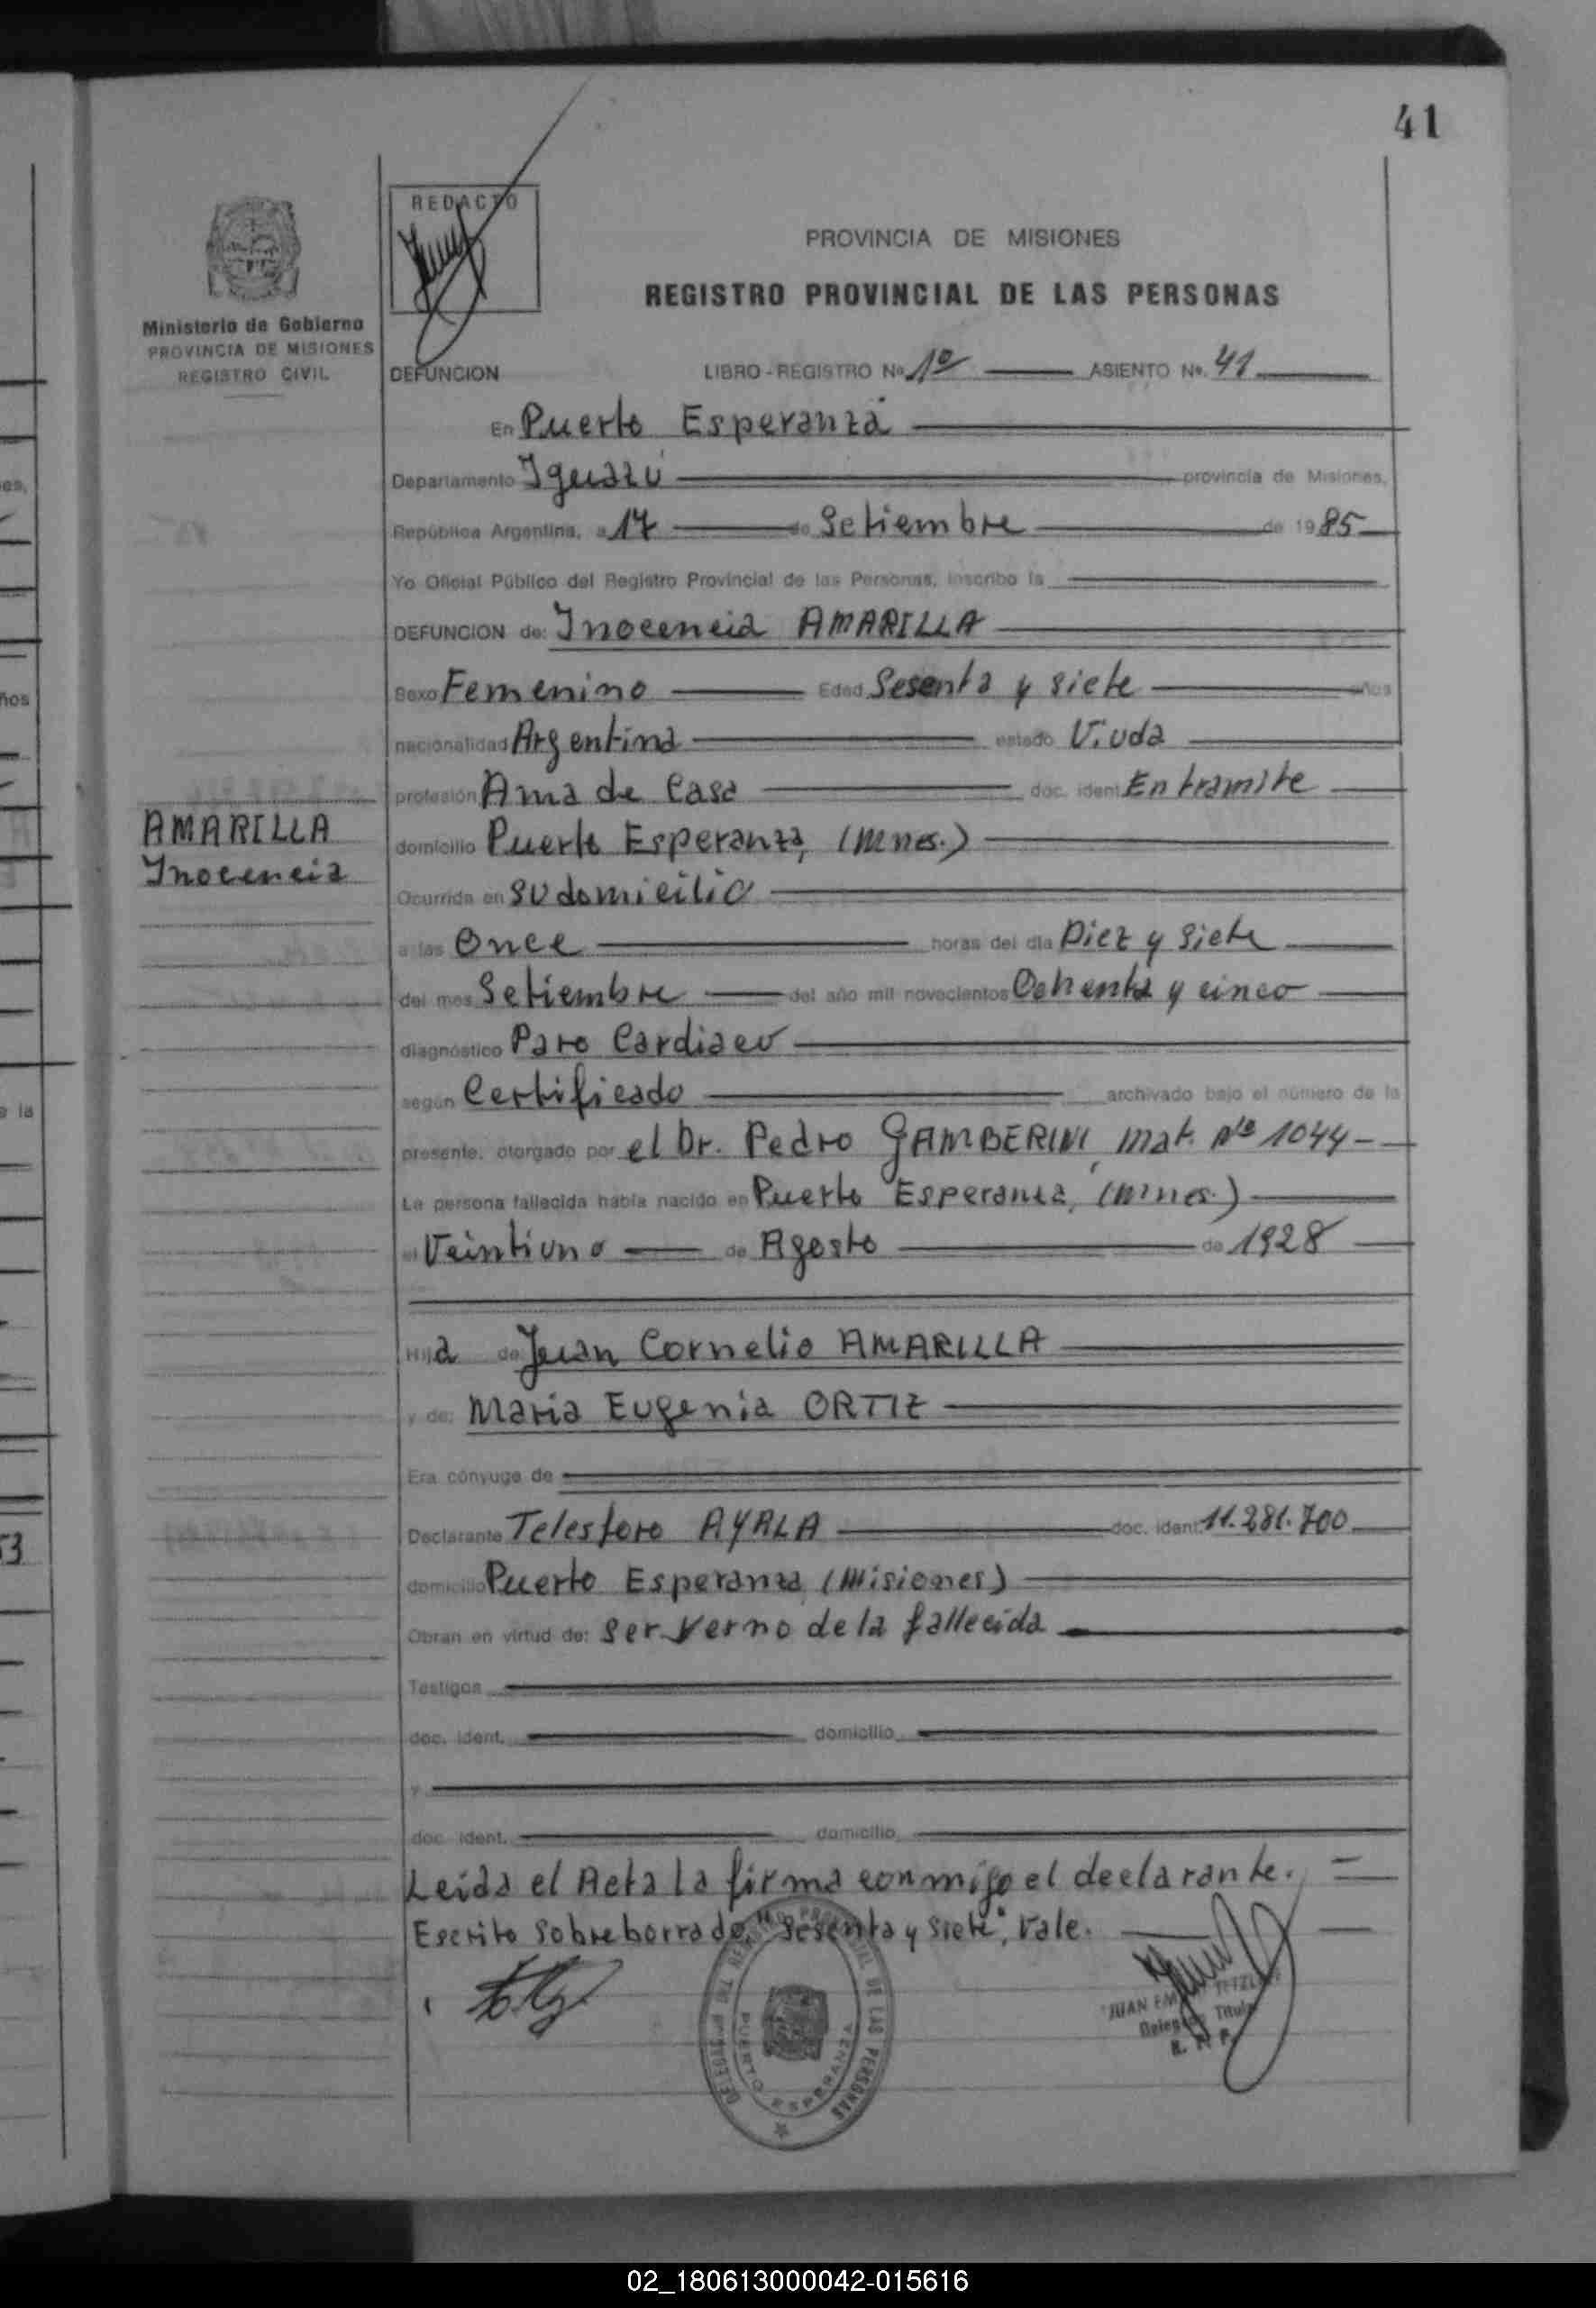 41
REDACTO
PROVINCIA DE MISIONES
REGISTRO PROVINCIAL DE LAS PERSONAS
Ministerio de Gobierno
PROVINCIA DE MISIONES
REGISTRO CIVIL
DEFUNCION LIBRO - REGISTRO Nº 1º ASIENTO Nº. 41
En Puerto Esperanza
Departamento Iguazú provincia de Misiones,
República Argentina, a 17 de Setiembre de 1985
Yo Oficial Público del Registro Provincial de las Personas, inscribo la
DEFUNCION de: Inocencia AMARILLA
Sexo Femenino Edad Sesenta y siete años
nacionalidad Argentina estado Viuda
profesión Ama de Casa doc. ident. En tramite
AMARILLA
Inocencia
domicilio Puerto Esperanza, (Mnes.)
Ocurrida en su domicilio
a las Once horas del día Diez y siete
del mes Setiembre del año mil novecientos Ochenta y cinco
diagnóstico Paro Cardiaco
según Certificado archivado bajo el número de la
presente, otorgado por el Dr. Pedro GAMBERINI, mat. Nº 1044
La persona fallecida había nacido en Puerto Esperanza, (Mnes.)
el Veintiuno de Agosto de 1928
Hija de Juan Cornelio AMARILLA
y de: Maria Eugenia ORTIZ
Era cónyuge de
Declarante Telesforo AYALA doc. ident. 11.281.700
domicilio Puerto Esperanza (Misiones)
Obran en virtud de: ser yerno de la fallecida
Testigos
doc. ident. domicilio
y
doc. ident. domicilio
Leida el Acta la firma conmigo el declarante. =
Escrito sobreborrado, "Sesenta y siete", Vale.
DEL REGISTRO PROVINCIAL DE LAS PERSONAS
PUERTO ESPERANZA
JUAN
Titular
R. P. P.
es,
ños
e la
53
02_180613000042-015616